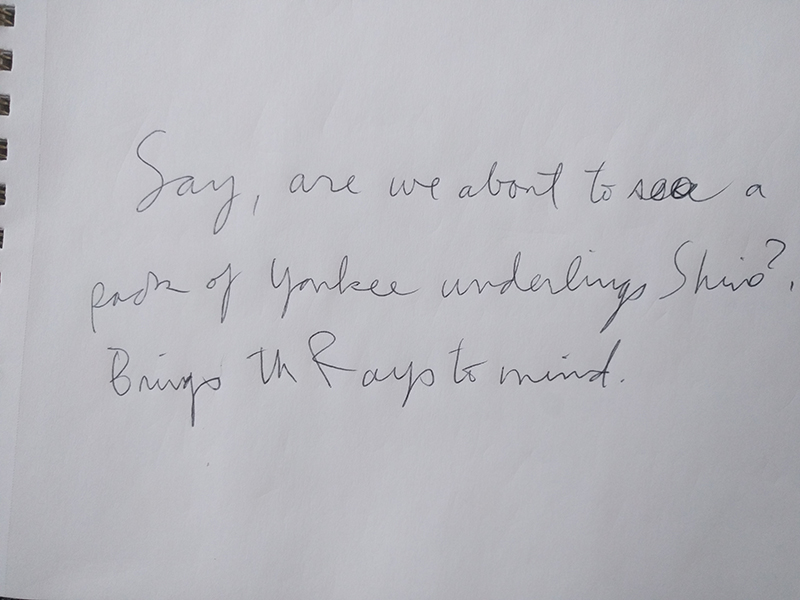 Say, are we about to see a
pack of Yankee underlings Shine?
Brings th Rays to mind.